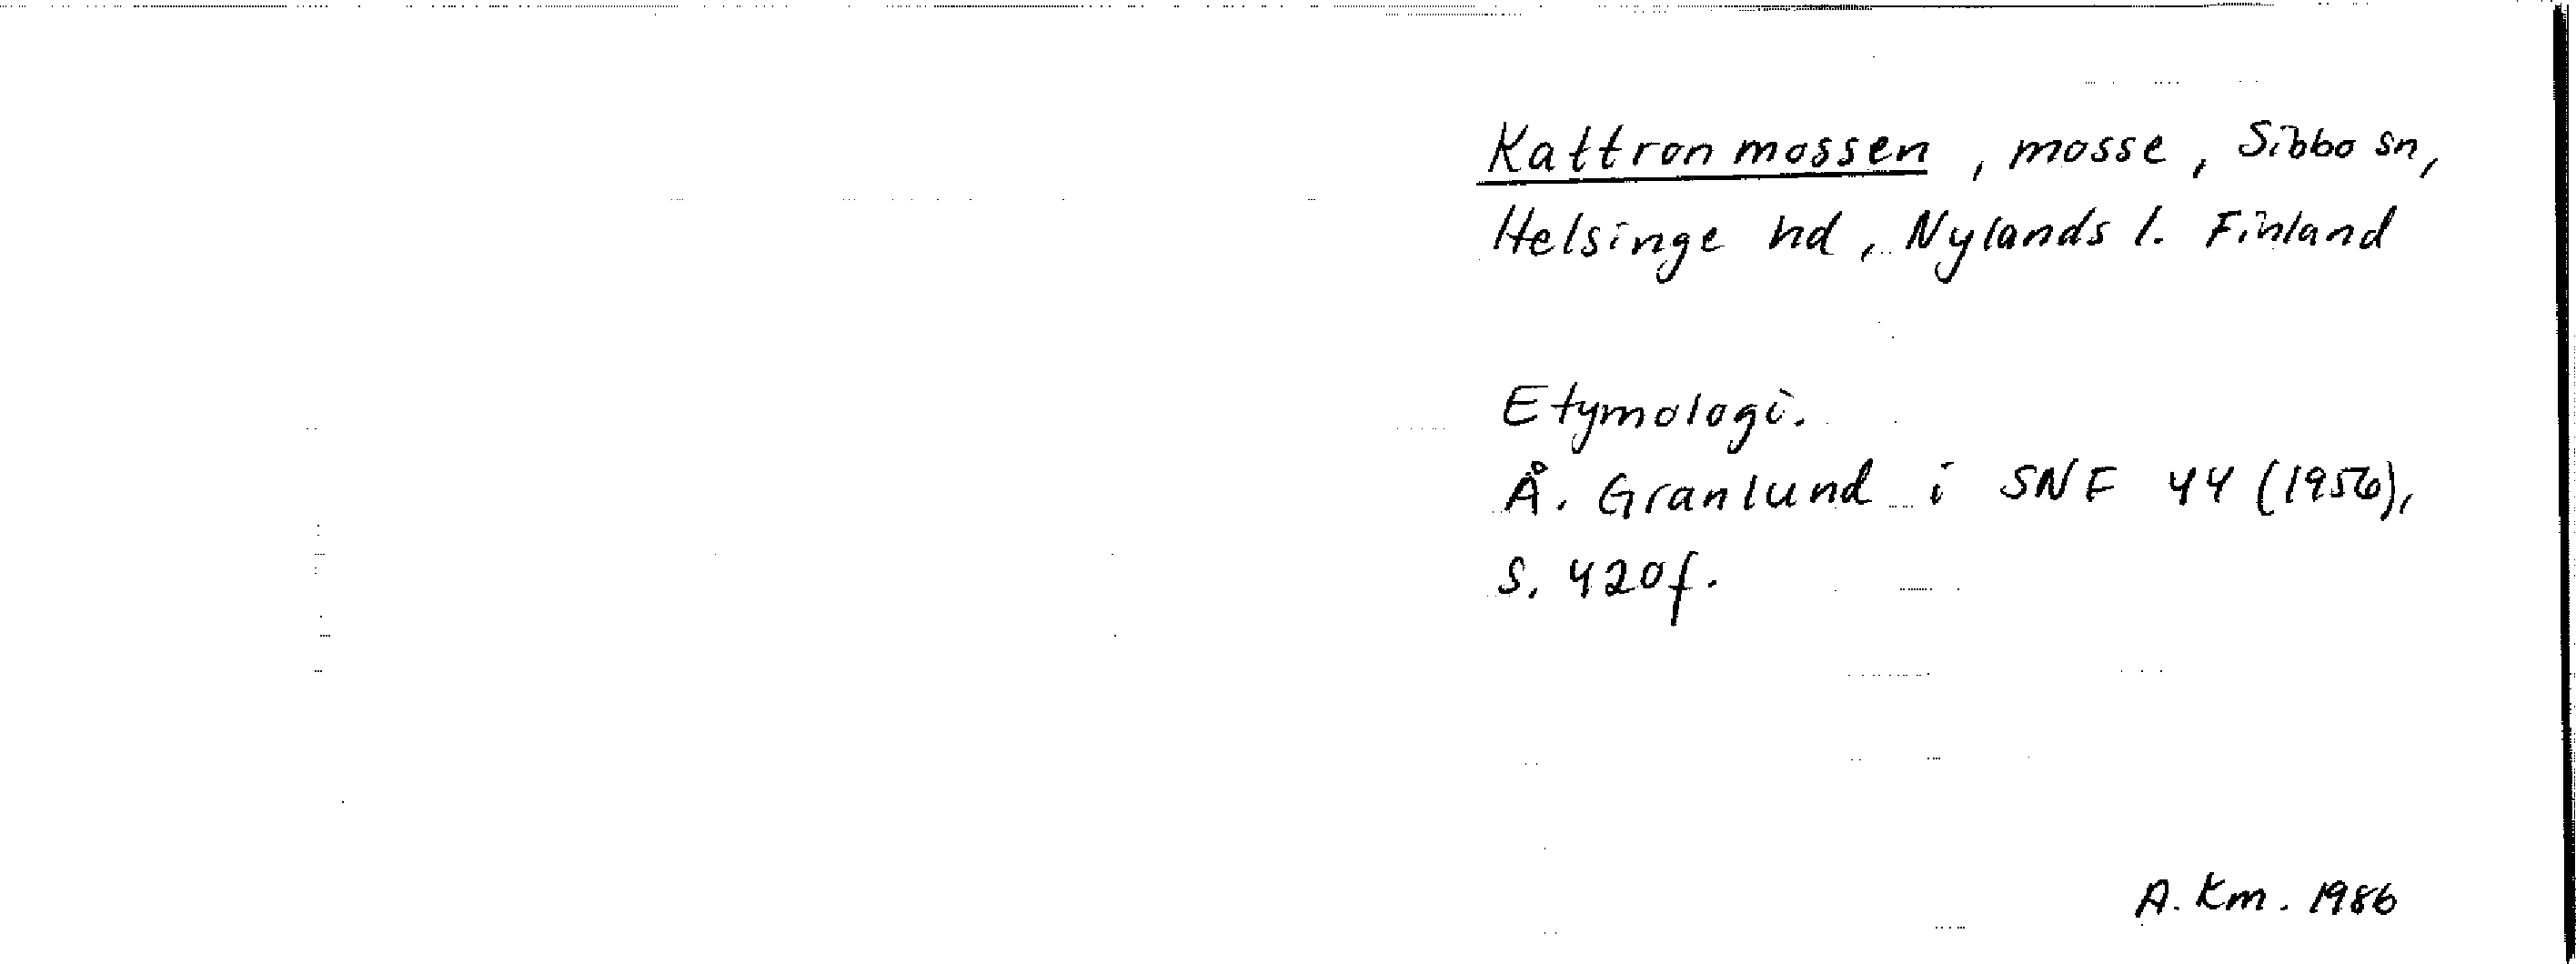 Kattronmossen, mosse, Sibbo sn,
Helsinge hd, Nylands l. Finland
Etymologi.
Å. Granlund i SNF 44 (1956),
s. 420f.
A. Km. 1986